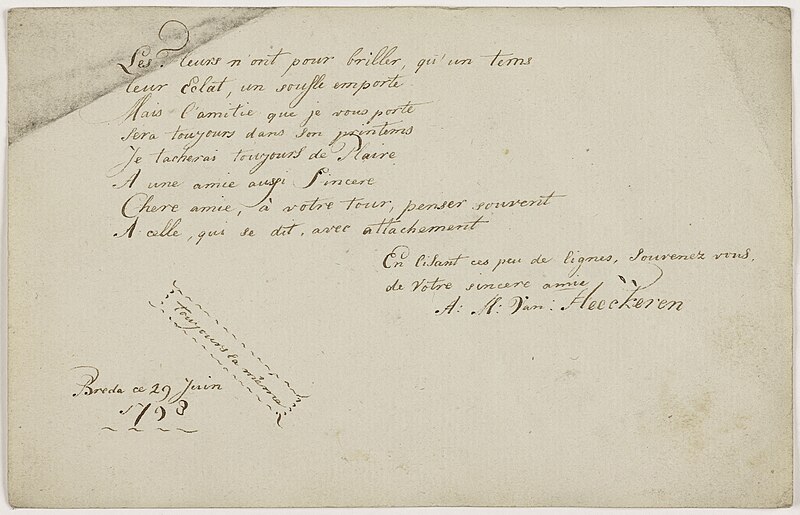 Les fleurs n'ont pour briller, qu'un tems
leur Eclat, un soufle emporte
Mais l'amitie que je vous porte
Sera toujours dans son printems
Je tacherai toujours de Plaire
A une amie aussi Sincere
Chere amie, à votre tour, penser souvent
A celle, qui se dit, avec attachement
En lisant ces peu de lignes, Souvenez vous,
de Votre sincere amie
A: M: Van: Heeckeren
toujours la meme
Breda ce 29 Juin
1798